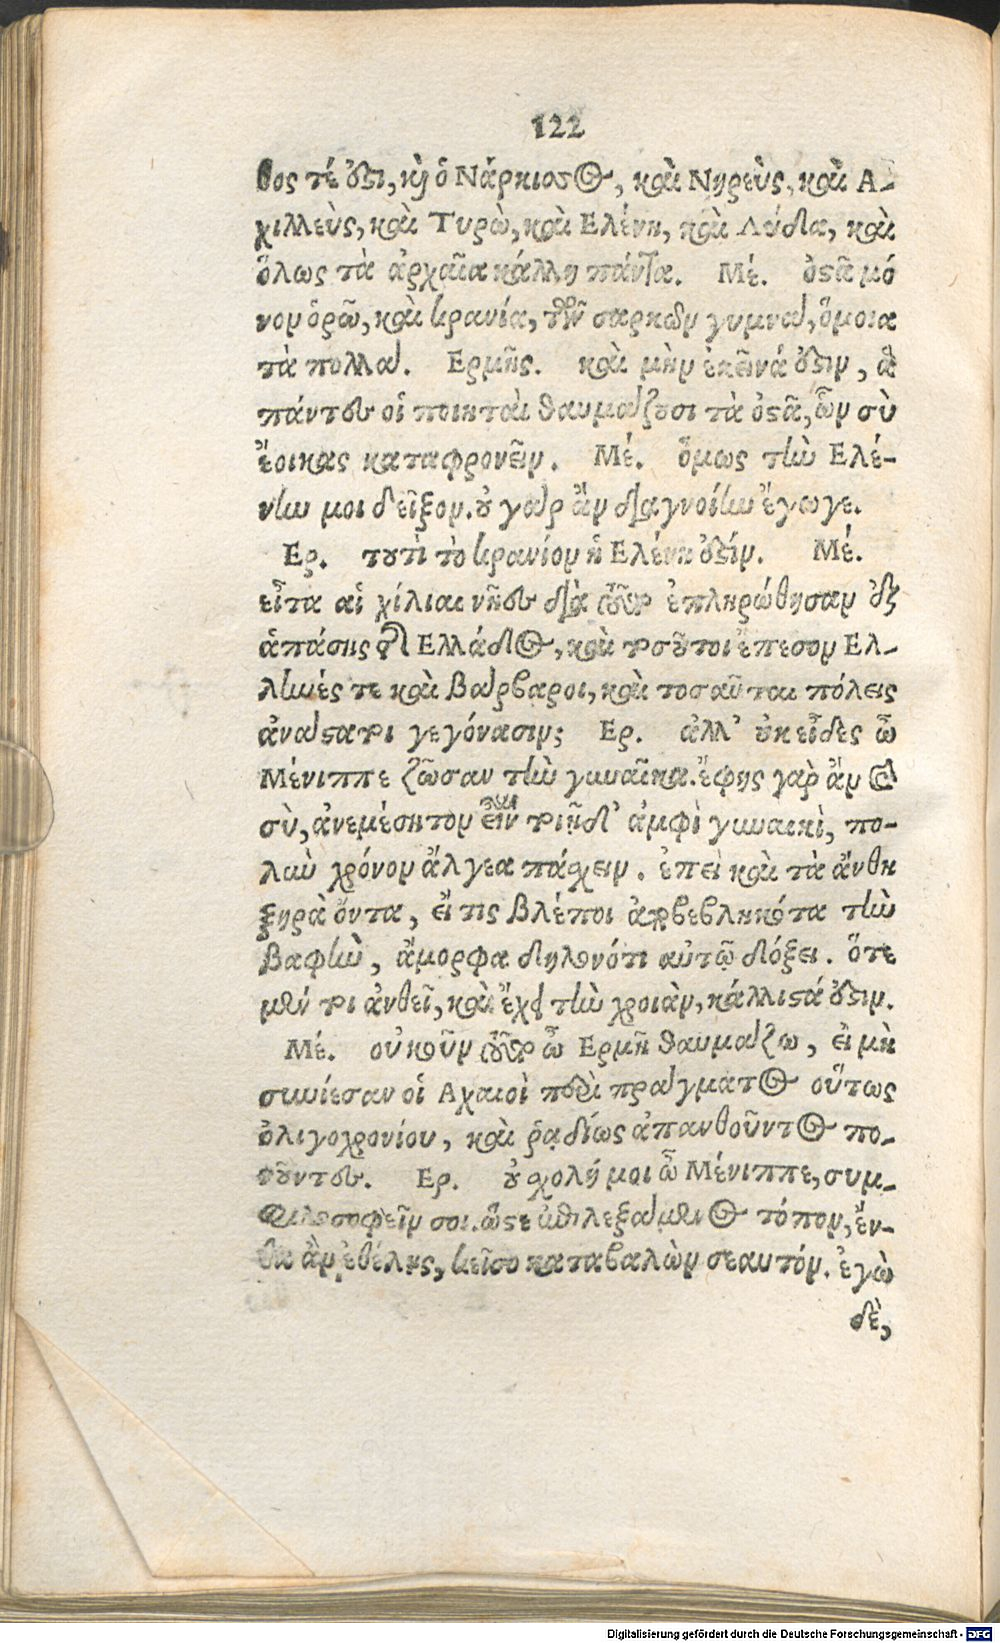 122
θος τέ ὅςι, κὴ ὁ Νάρκισσος, καὶ Νηρεὺς, καὶ Α-
χιλλεὺς, καὶ Τυρὼ, καὶ Ελένη, καὶ Λήδα, καὶ
ὅλως τὰ ἀρχαῖα κάλλη πάντα. Μέ. ὀςᾶ μό
νον ὁρῶ, καὶ κρανία, τῶν σαρκῶν γυμνὰ, ὅμοια
τὰ πολλά. Ερμῆς. καὶ μὴν ἐκεῖνά ὅςιν, ἃ
πάντες οἱ ποιηταὶ θαυμάζουσι τὰ ὀςᾶ, ὧν σὺ
ἔοικας καταφρονεῖν. Μέ. ὅμως τὴν Ελέ-
νην μοι δεῖξον. οὐ γὰρ ἂν διαγνοίην ἔγωγε.
Ερ. τουτὶ τὸ κρανίον ἡ Ελένη ὅςίν. Μέ.
εἶτα αἱ χίλιαι νῆες διὰ τοῦτο ἐπληρώθησαν ἐξ
ἁπάσης τῆς Ελλάδος, καὶ τοσοῦτοι ἔπεσον Ελ-
ληνές τε καὶ Βάρβαροι, καὶ τοσαῦται πόλεις
ἀνάςατοι γεγόνασιν; Ερ. ἀλλ' οὐκ εἶδες ὦ
Μένιππε ζῶσαν τὴν γυναῖκα. ἔφης γὰρ ἂν καὶ
σὺ, ἀνεμέσητον εἶναι τοιῇδ' ἀμφὶ γυναικὶ, πο-
λὺν χρόνον ἄλγεα πάσχειν. ἐπεὶ καὶ τὰ ἄνθη
ξηρὰ ὄντα, εἴ τις βλέποι ἀποβεβληκότα τὴν
βαφὴν, ἄμορφα δηλονότι αὐτῷ δόξει. ὅτε
μέν τοι ἀνθεῖ, καὶ ἔχει τὴν χροιὰν, κάλλιςά ὅςιν.
Μέ. οὐκοῦν τοῦτο ὦ Ερμῆ θαυμάζω, εἰ μὴ
συνίεσαν οἱ Αχαιοὶ περὶ πράγματος οὕτως
ὀλιγοχρονίου, καὶ ῥᾳδίως ἀπανθοῦντος πο-
νοῦντες. Ερ. οὐ σχολή μοι ὦ Μένιππε, συμ-
φιλοσοφεῖν σοι. ὥςε ἐπιλεξάμενος τόπον, ἔν-
θα ἂν ἐθέλῃς, κεῖσο καταβαλὼν σεαυτόν. ἐγὼ
δὲ,
Digitalisierung gefördert durch die Deutsche Forschungsgemeinschaft - DFG